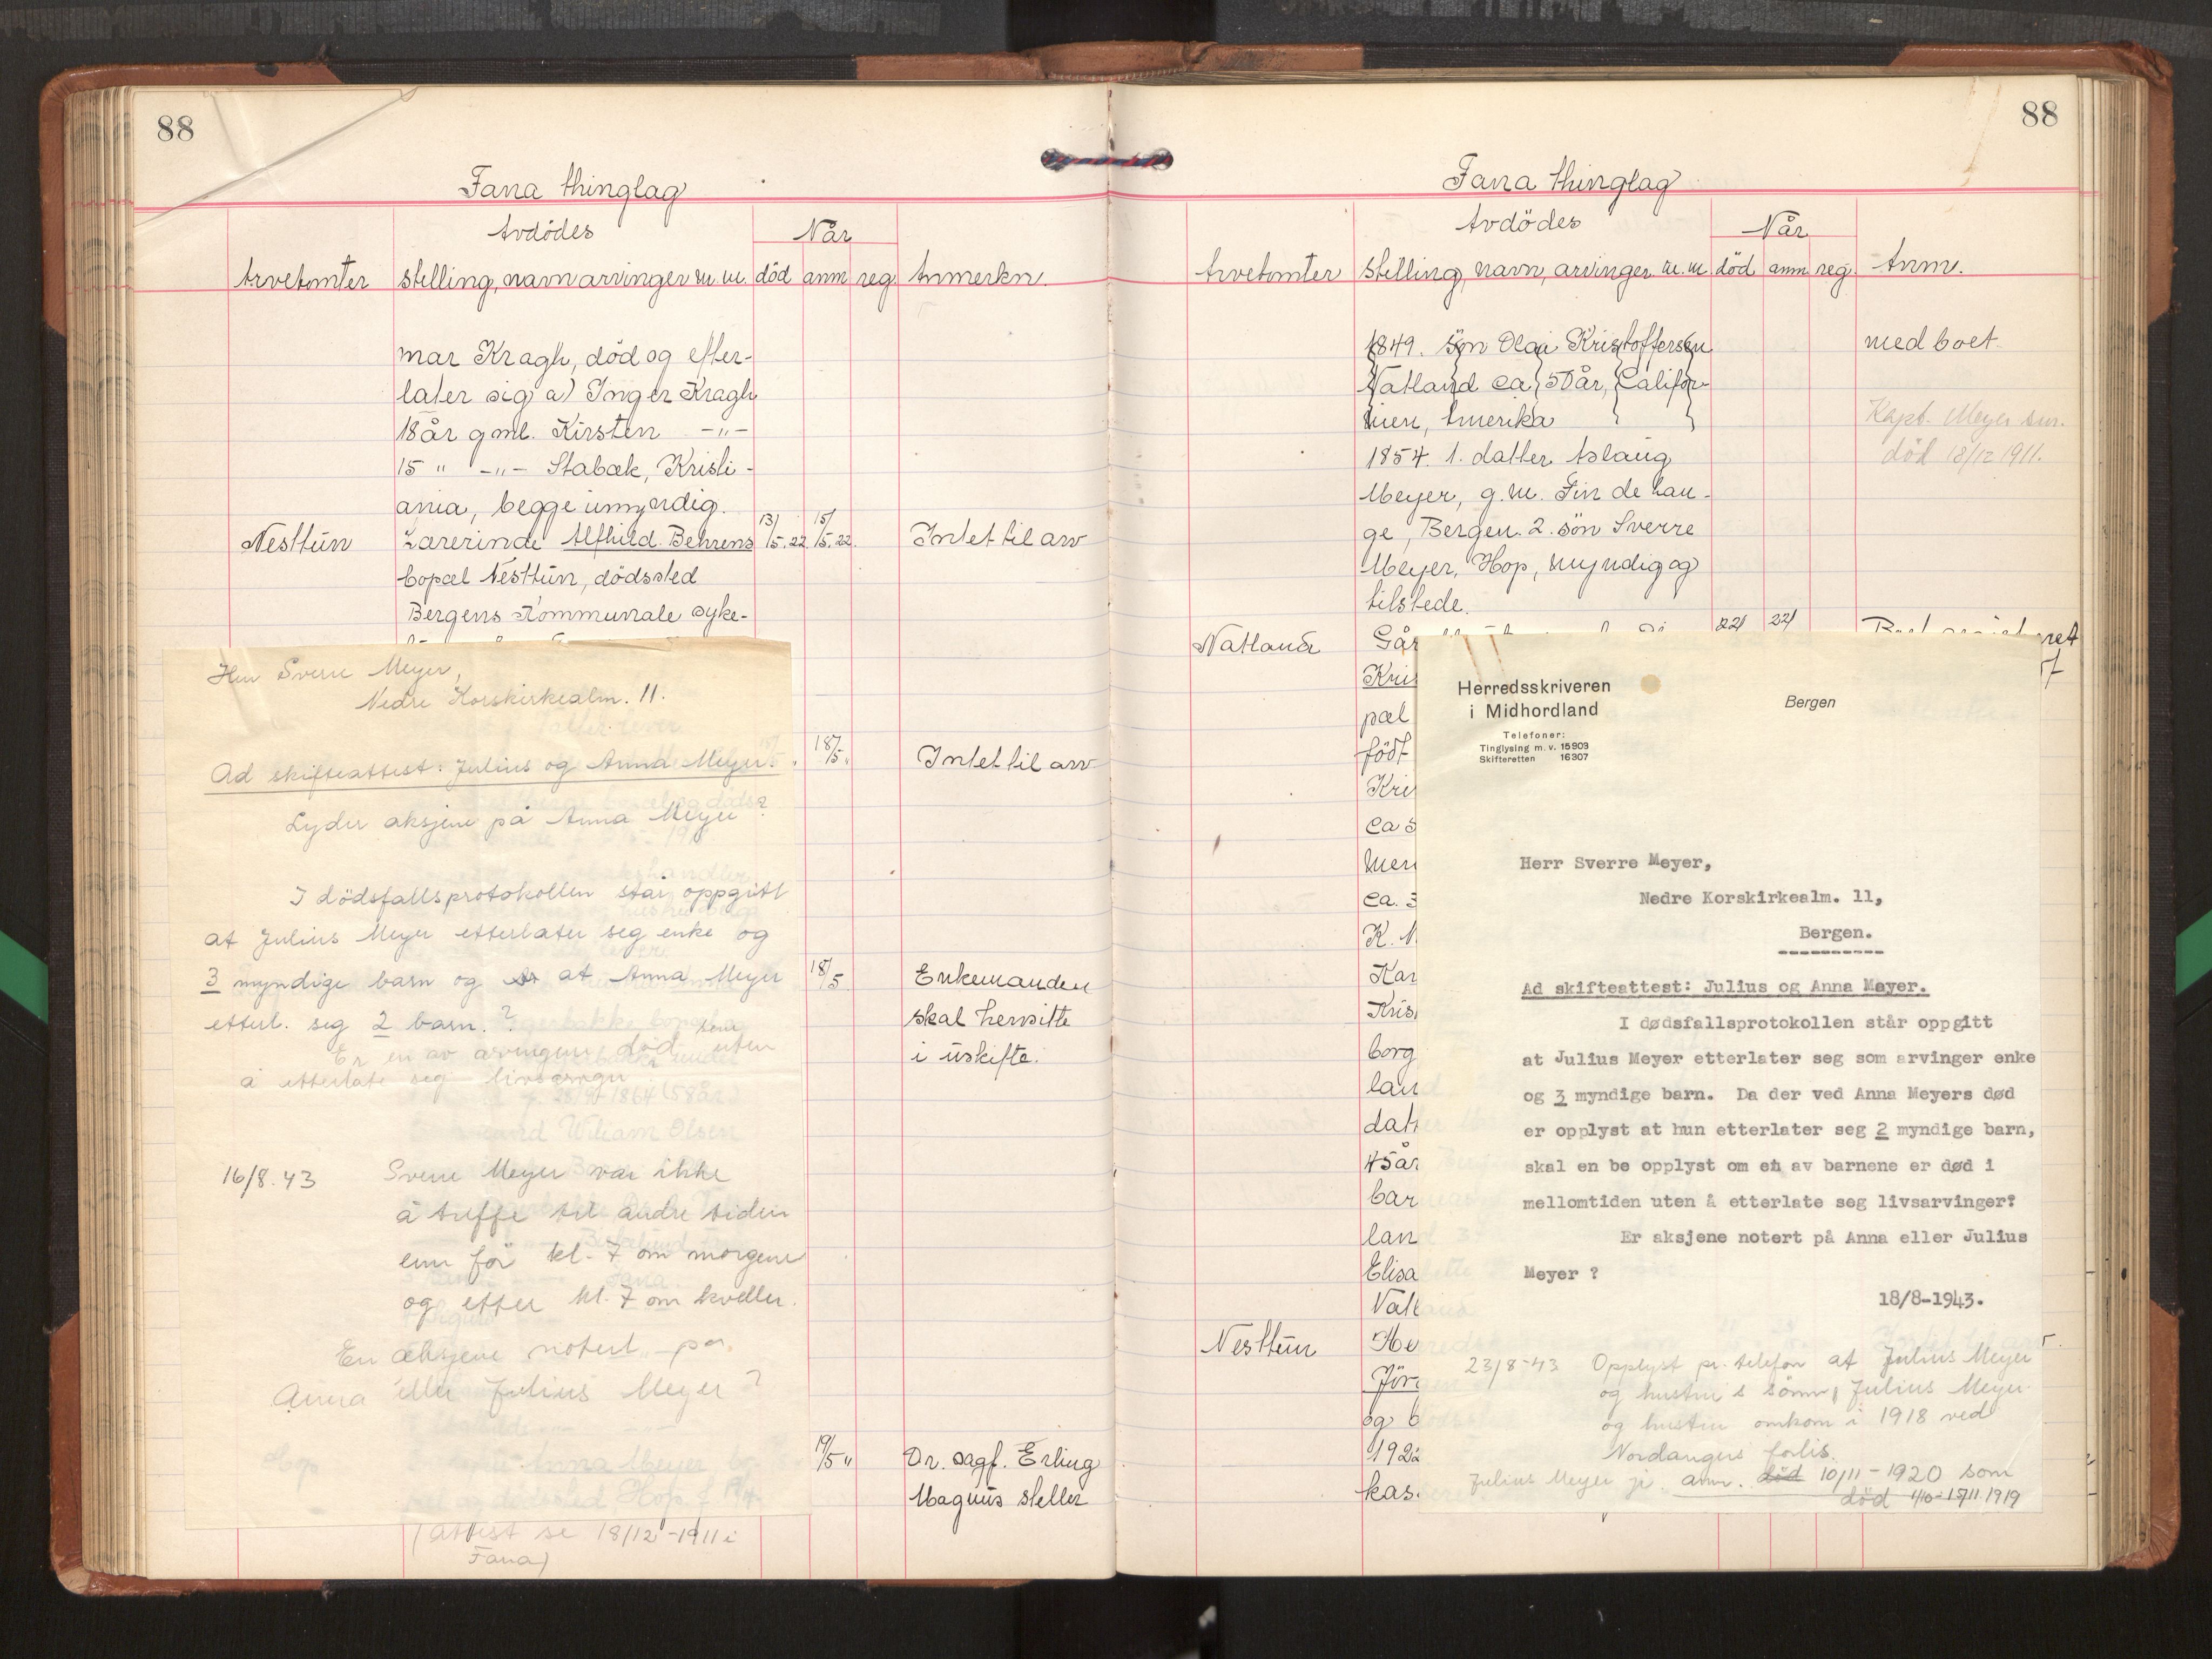 88
Fana thinglag
Avdödes
Når
Arvetomter
stelling, navn arvinger m. m.
död
anm
reg.
Anmerkn.
mar Kragh, död og efter-
later sig a) Inger Kragh
18 år gml. Kirsten -"-
15 " -"- Stabæk, Kristi-
ania, begge umyndig.
Nesttun
Lærerinde Alfhild Behrens
13/5.22
15/5.22.
Intet til arv
bopæl Nesttun, dödssted
Bergens Kommunale syke-
Herr Sverre Meyer,
Nedre Korskirkealm. 11.
Ad skifteattest: Julius og Anna Meyer.
Lyder aksjene på Anna Meyer?
I dödsfallsprotokollen står oppgitt
at Julius Meyer etterlater seg enke og
3 myndige barn og at Anna Meyer
etterl. seg 2 barn.?
Er en av arvingene död uten
å etterlate seg livsarvger
16/8.43 Sverre Meyer var ikke
å treffe til andre tider
enn før kl. 7 om morgene
og etter kl. 7 om kvelder.
Er aksjene notert på
Anna eller Julius Meyer?
18/5 "
Intet til arv
18/5
Enkemanden
skal hensitte
i uskifte.
19/5 "
Dr. sagf. Erling
Magnus steller
Hop
Anna Meyer, bo-
pæl og dödssted Hop f.
(attest se 18/12-1911 i
Fana)
88
Fana thinglag
Avdödes
Når
Arvetomter
stelling, navn, arvinger m. m
död
anm
reg.
Anm.
1849. Sön Olai Kristoffersen
Natland ca 50 år, Califor-
nien, Amerika
1854. 1. datter Aslaug
Meyer, g. m. Fin de Lan-
ge, Bergen. 2. sön Sverre
Meyer, Hop, myndig og
tilstede.
med boet.
Kapt. Meyer sen.
död 18/12 1911.
Natland
Går
22/
22/
Kris
pæl
födt
Kris
ca 5
men
ca. 3
K. N
Kar
Kris
borg
lan
datt
45 år
bar
lan
Elisa
Natl
Nesttun
He
Jörg
og b
1922
kas.
Herredsskriveren
i Midhordland
Telefoner:
Tinglysing m. v. 15903
Skifteretten 16307
Bergen
Herr Sverre Meyer,
Nedre Korskirkealm. 11,
Bergen.
Ad skifteattest: Julius og Anna Meyer.
I dødsfallsprotokollen står oppgitt
at Julius Meyer etterlater seg som arvinger enke
og 3 myndige barn. Da der ved Anna Meyers død
er opplyst at hun etterlater seg 2 myndige barn,
skal en be opplyst om en av barnene er død i
mellomtiden uten å etterlate seg livsarvinger?
Er aksjene notert på Anna eller Julius
Meyer ?
18/8-1943.
23/8-43 Opplyst pr. telefon at Julius Meyer
og hustru's sönn, Julius Meyer
og hustru omkom i 1918 ved
Nordangers forlis.
Julius Meyer jr. anm. död 10/11-1920 som
död 1/10-15/11 1919